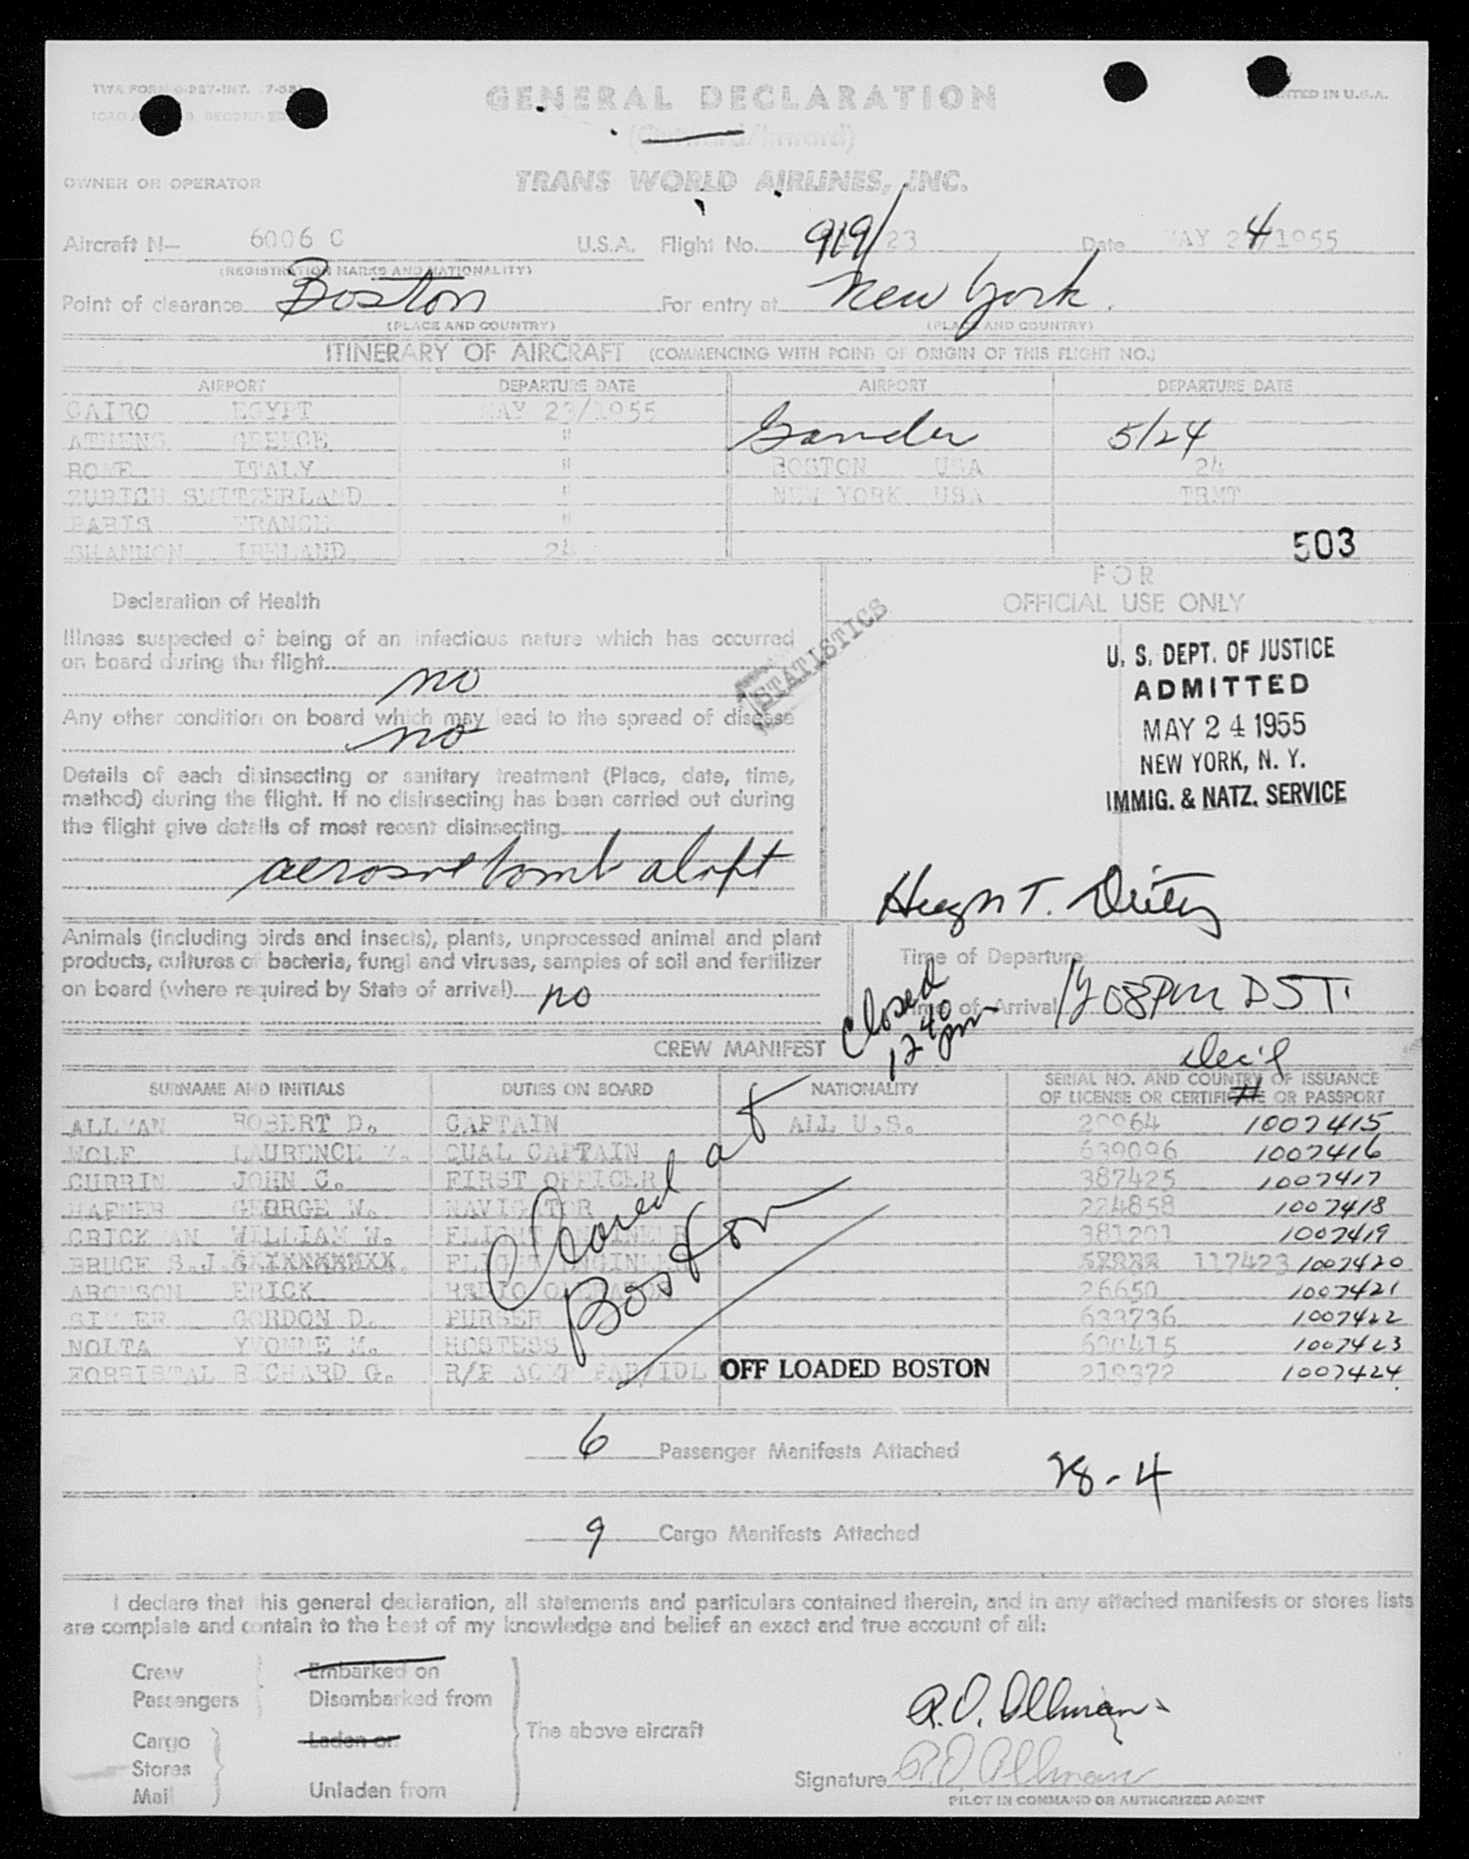 GENERAL DECLARATION
PRINTED IN U.S.A.
(Outward/Inward)
OWNER OR OPERATOR TRANS WORLD AIRLINES, INC.
Aircraft N— 6006 C U.S.A. Flight No. 919/ 23 Date MAY 24/1955
(REGISTRATION MARKS AND NATIONALITY)
Point of clearance Boston For entry at New York.
(PLACE AND COUNTRY) (PLACE AND COUNTRY)
ITINERARY OF AIRCRAFT (COMMENCING WITH POINT OF ORIGIN OF THIS FLIGHT NO.)
AIRPORT DEPARTURE DATE AIRPORT DEPARTURE DATE
CAIRO EGYPT MAY 23/1955 Gander 5/24
ATHENS GREECE "
ROME ITALY " BOSTON USA 24
ZURICH SWITZERLAND " NEW YORK USA TRMT
PARIS FRANCE "
SHANNON IRELAND 24
503
FOR
OFFICIAL USE ONLY
Declaration of Health
Illness suspected of being of an infectious nature which has occurred
on board during the flight
no
Any other condition on board which may lead to the spread of disease
no
Details of each disinsecting or sanitary treatment (Place, date, time,
method) during the flight. If no disinsecting has been carried out during
the flight give details of most recent disinsecting
aerosol bomb aloft
STATISTICS
U. S. DEPT. OF JUSTICE
ADMITTED
MAY 24 1955
NEW YORK, N. Y.
IMMIG. & NATZ. SERVICE
Animals (including birds and insects), plants, unprocessed animal and plant
products, cultures of bacteria, fungi and viruses, samples of soil and fertilizer
on board (where required by State of arrival) no
Hugh T.
Time of Departure
Time of Arrival 1208PM DST.
Closed
12 40
pm
CREW MANIFEST
Decl
#
SURNAME AND INITIALS DUTIES ON BOARD NATIONALITY SERIAL NO. AND COUNTRY OF ISSUANCE
OF LICENSE OR CERTIFICATE OR PASSPORT
ALLMAN ROBERT D. CAPTAIN ALL U.S. 20964 1007415
WOLF LAURENCE QUAL CAPTAIN 639096 1007416
CURRIN JOHN C. FIRST OFFICER 387425 1007417
HAFNER GEORGE W. NAVIGATOR 224858 1007418
CRICKMAN WILLIAM W. FLIGHT ENGINEER 381201 1007419
BRUCE S.J. FLIGHT ENGINEER 117423 1007420
ARONSON ERICK RADIO OPERATOR 26650 1007421
GORDON D. PURSER 633736 1007422
NOLTA YVONNE M. HOSTESS 600415 1007423
FORRISTAL RICHARD G. R/E ACMT PAR/IDL OFF LOADED BOSTON 219372 1007424
Cleared at
Boston
6 Passenger Manifests Attached
28-4
9 Cargo Manifests Attached
I declare that this general declaration, all statements and particulars contained therein, and in any attached manifests or stores lists
are complete and contain to the best of my knowledge and belief an exact and true account of all:
Crew Embarked on
Passengers Disembarked from
Cargo Laden on
Stores
Mail Unladen from
The above aircraft
R.D. Allman
Signature R.D. Allman
PILOT IN COMMAND OR AUTHORIZED AGENT